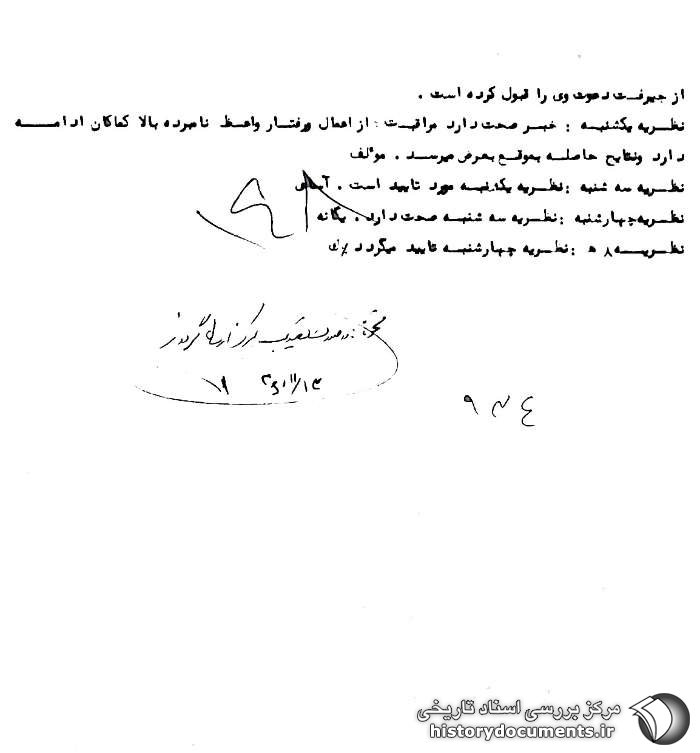 از جیرفت دعوت وی را قبول کرده است .
نظریه یکشنبه : خبر صحت دارد مراقبت از اعمال ورفتار واعظ نامبرده بالا کماکان ادامه
دارد ونتایج حاصله بموقع بعرض میرسد . مؤلف
نظریه سه شنبه : نظریه یکشنبه مورد تایید است .
نظریه چهارشنبه : نظریه سه شنبه صحت دارد . یگانه
نظریه ۸ ه : نظریه چهارشنبه تایید میگردد
۹۳۴
مرکز بررسی اسناد تاریخی
historydocuments.ir